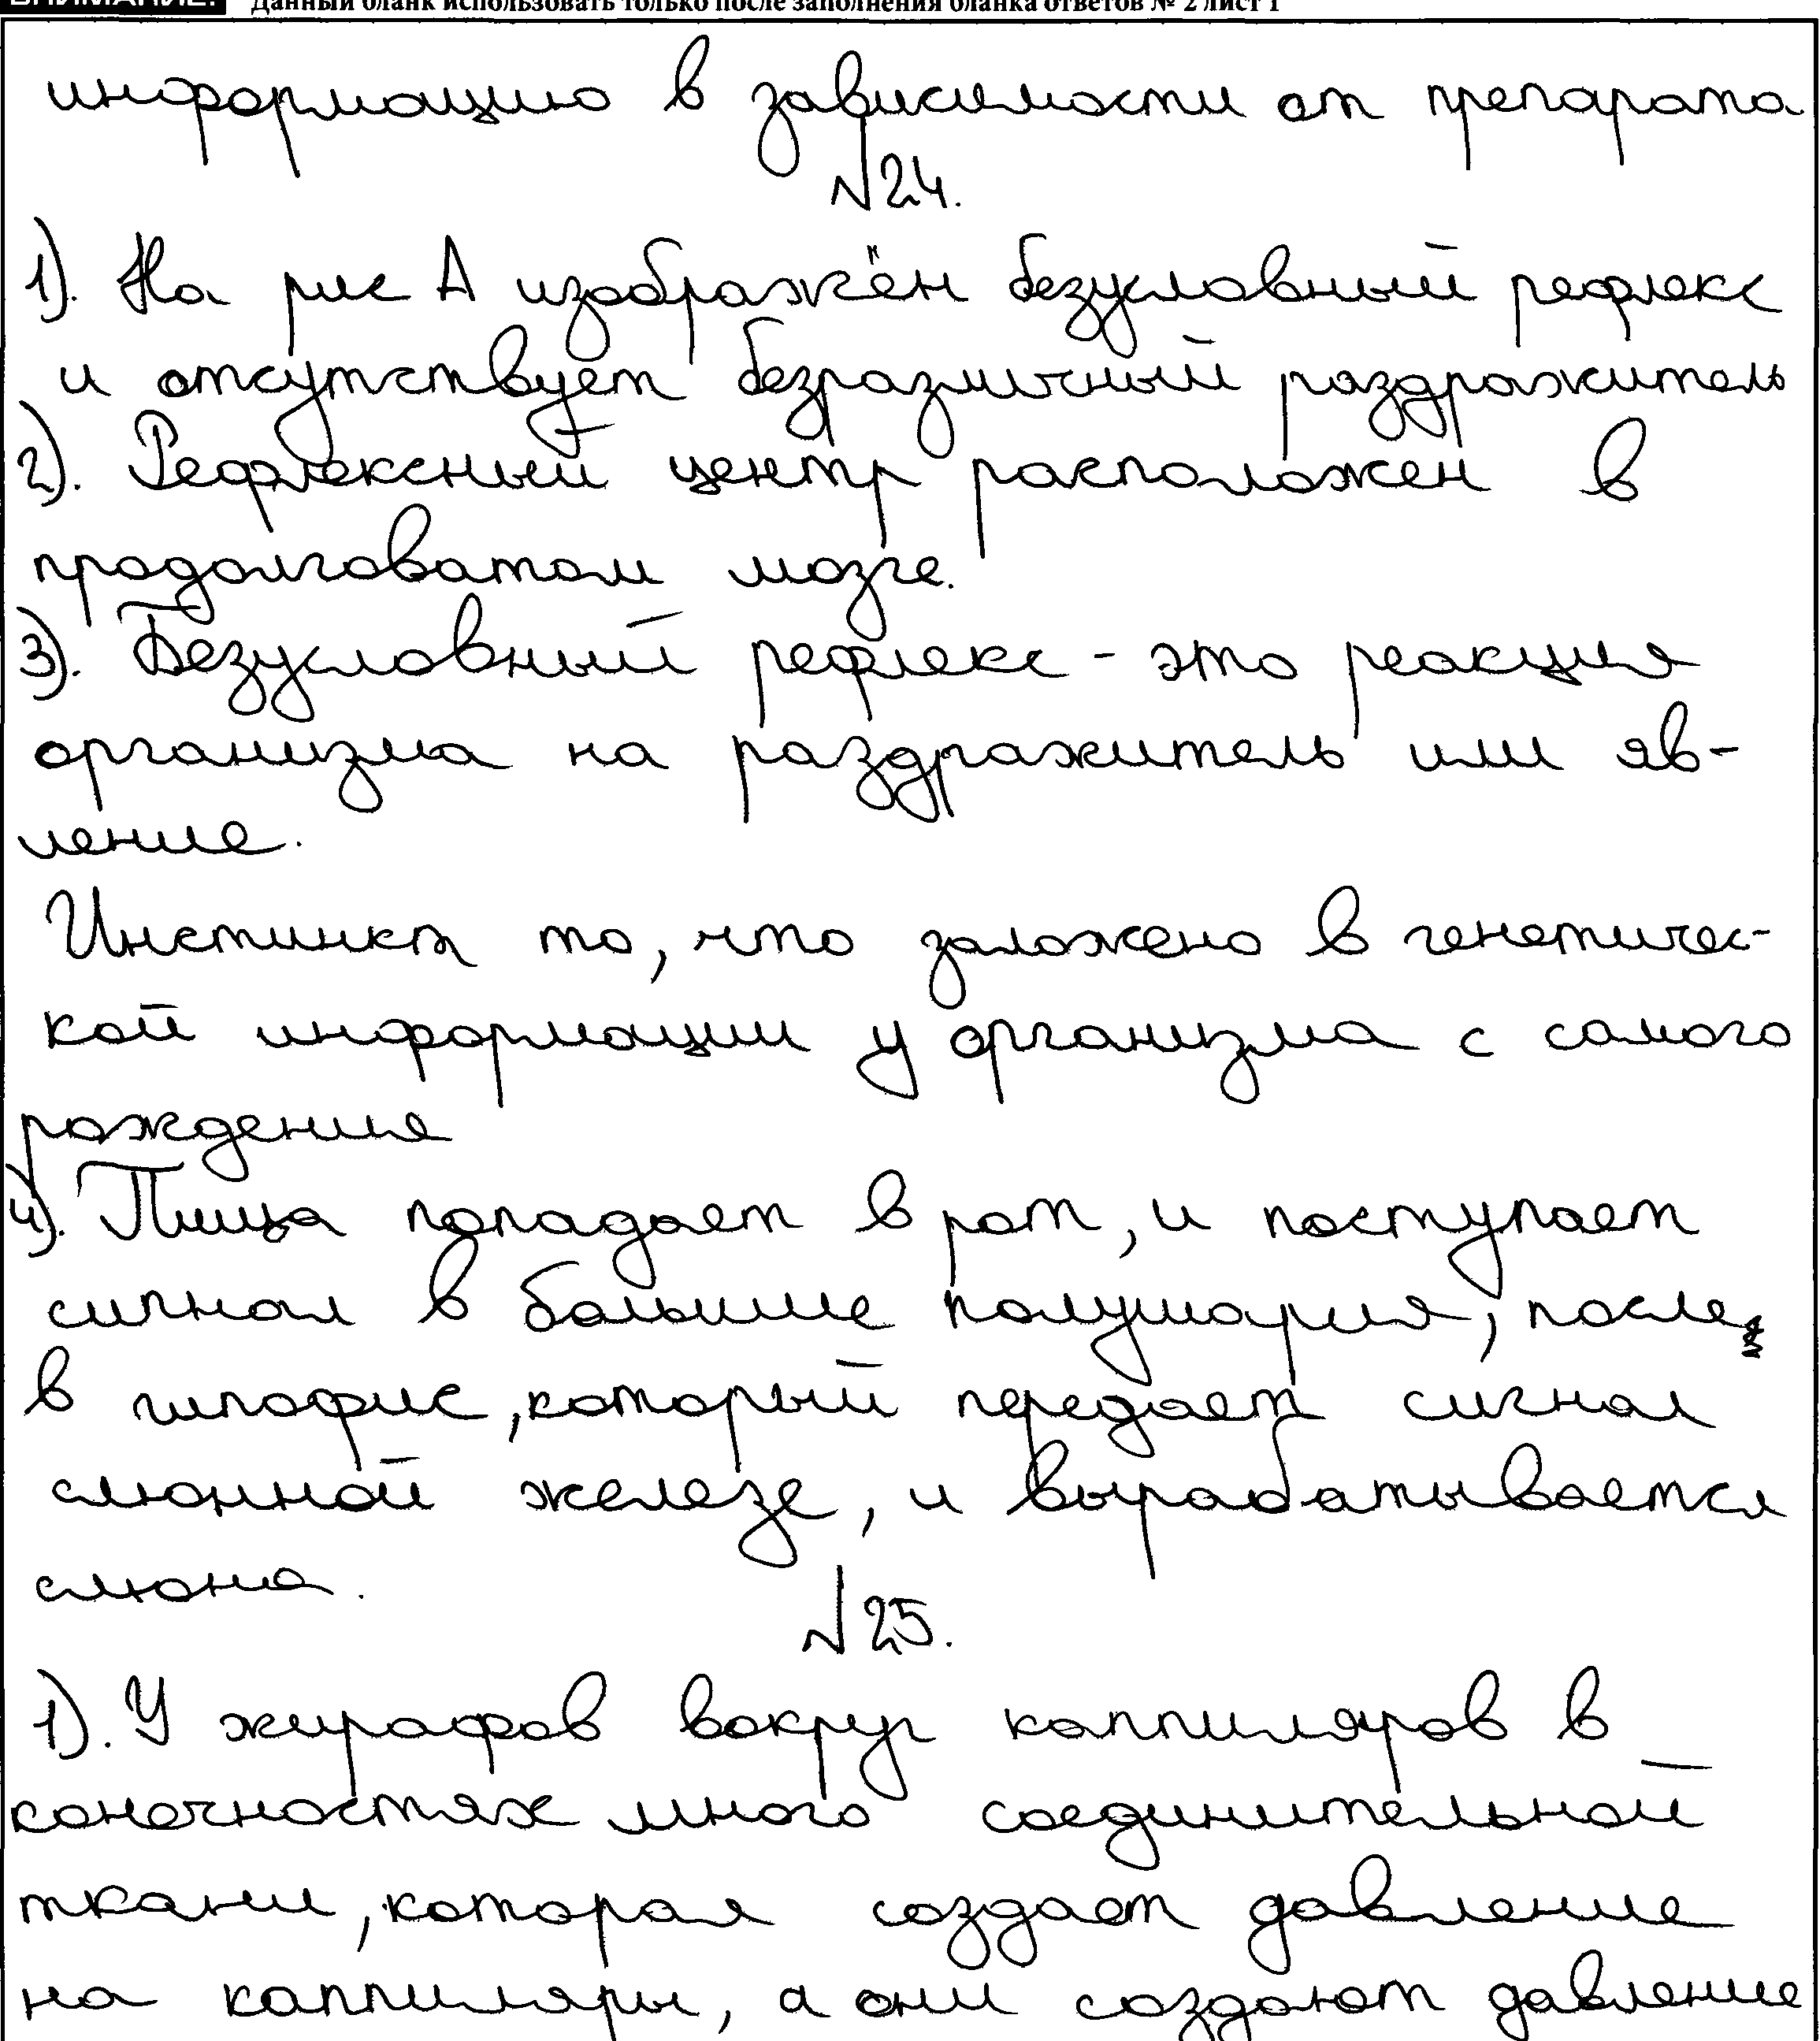 Данный бланк использовать только после заполнения бланка ответов № 2 лист 1
информацию в зависимости от препарата
№24.
1). На рис А изображён безусловный рефлекс
и отсутствует безразличный раздражитель
2). Рефлексный центр расположен в
продолговатом мозге.
3). Безусловный рефлекс - это реакция
организма на раздражитель или яв-
ление.
Инстинкт то, что заложено в генетичес-
кой информации у организма с самого
рождения
4). Пища попадает в рот, и поступает
сигнал в большие полушария, после
в гипофис, который передает сигнал
слюнной железе, и вырабатывается
слюна.
№25.
1). У жирафов вокруг каппиляров в
конечностях много соединительной
ткани, которая создает давление
на каппиляры, а они создают давление